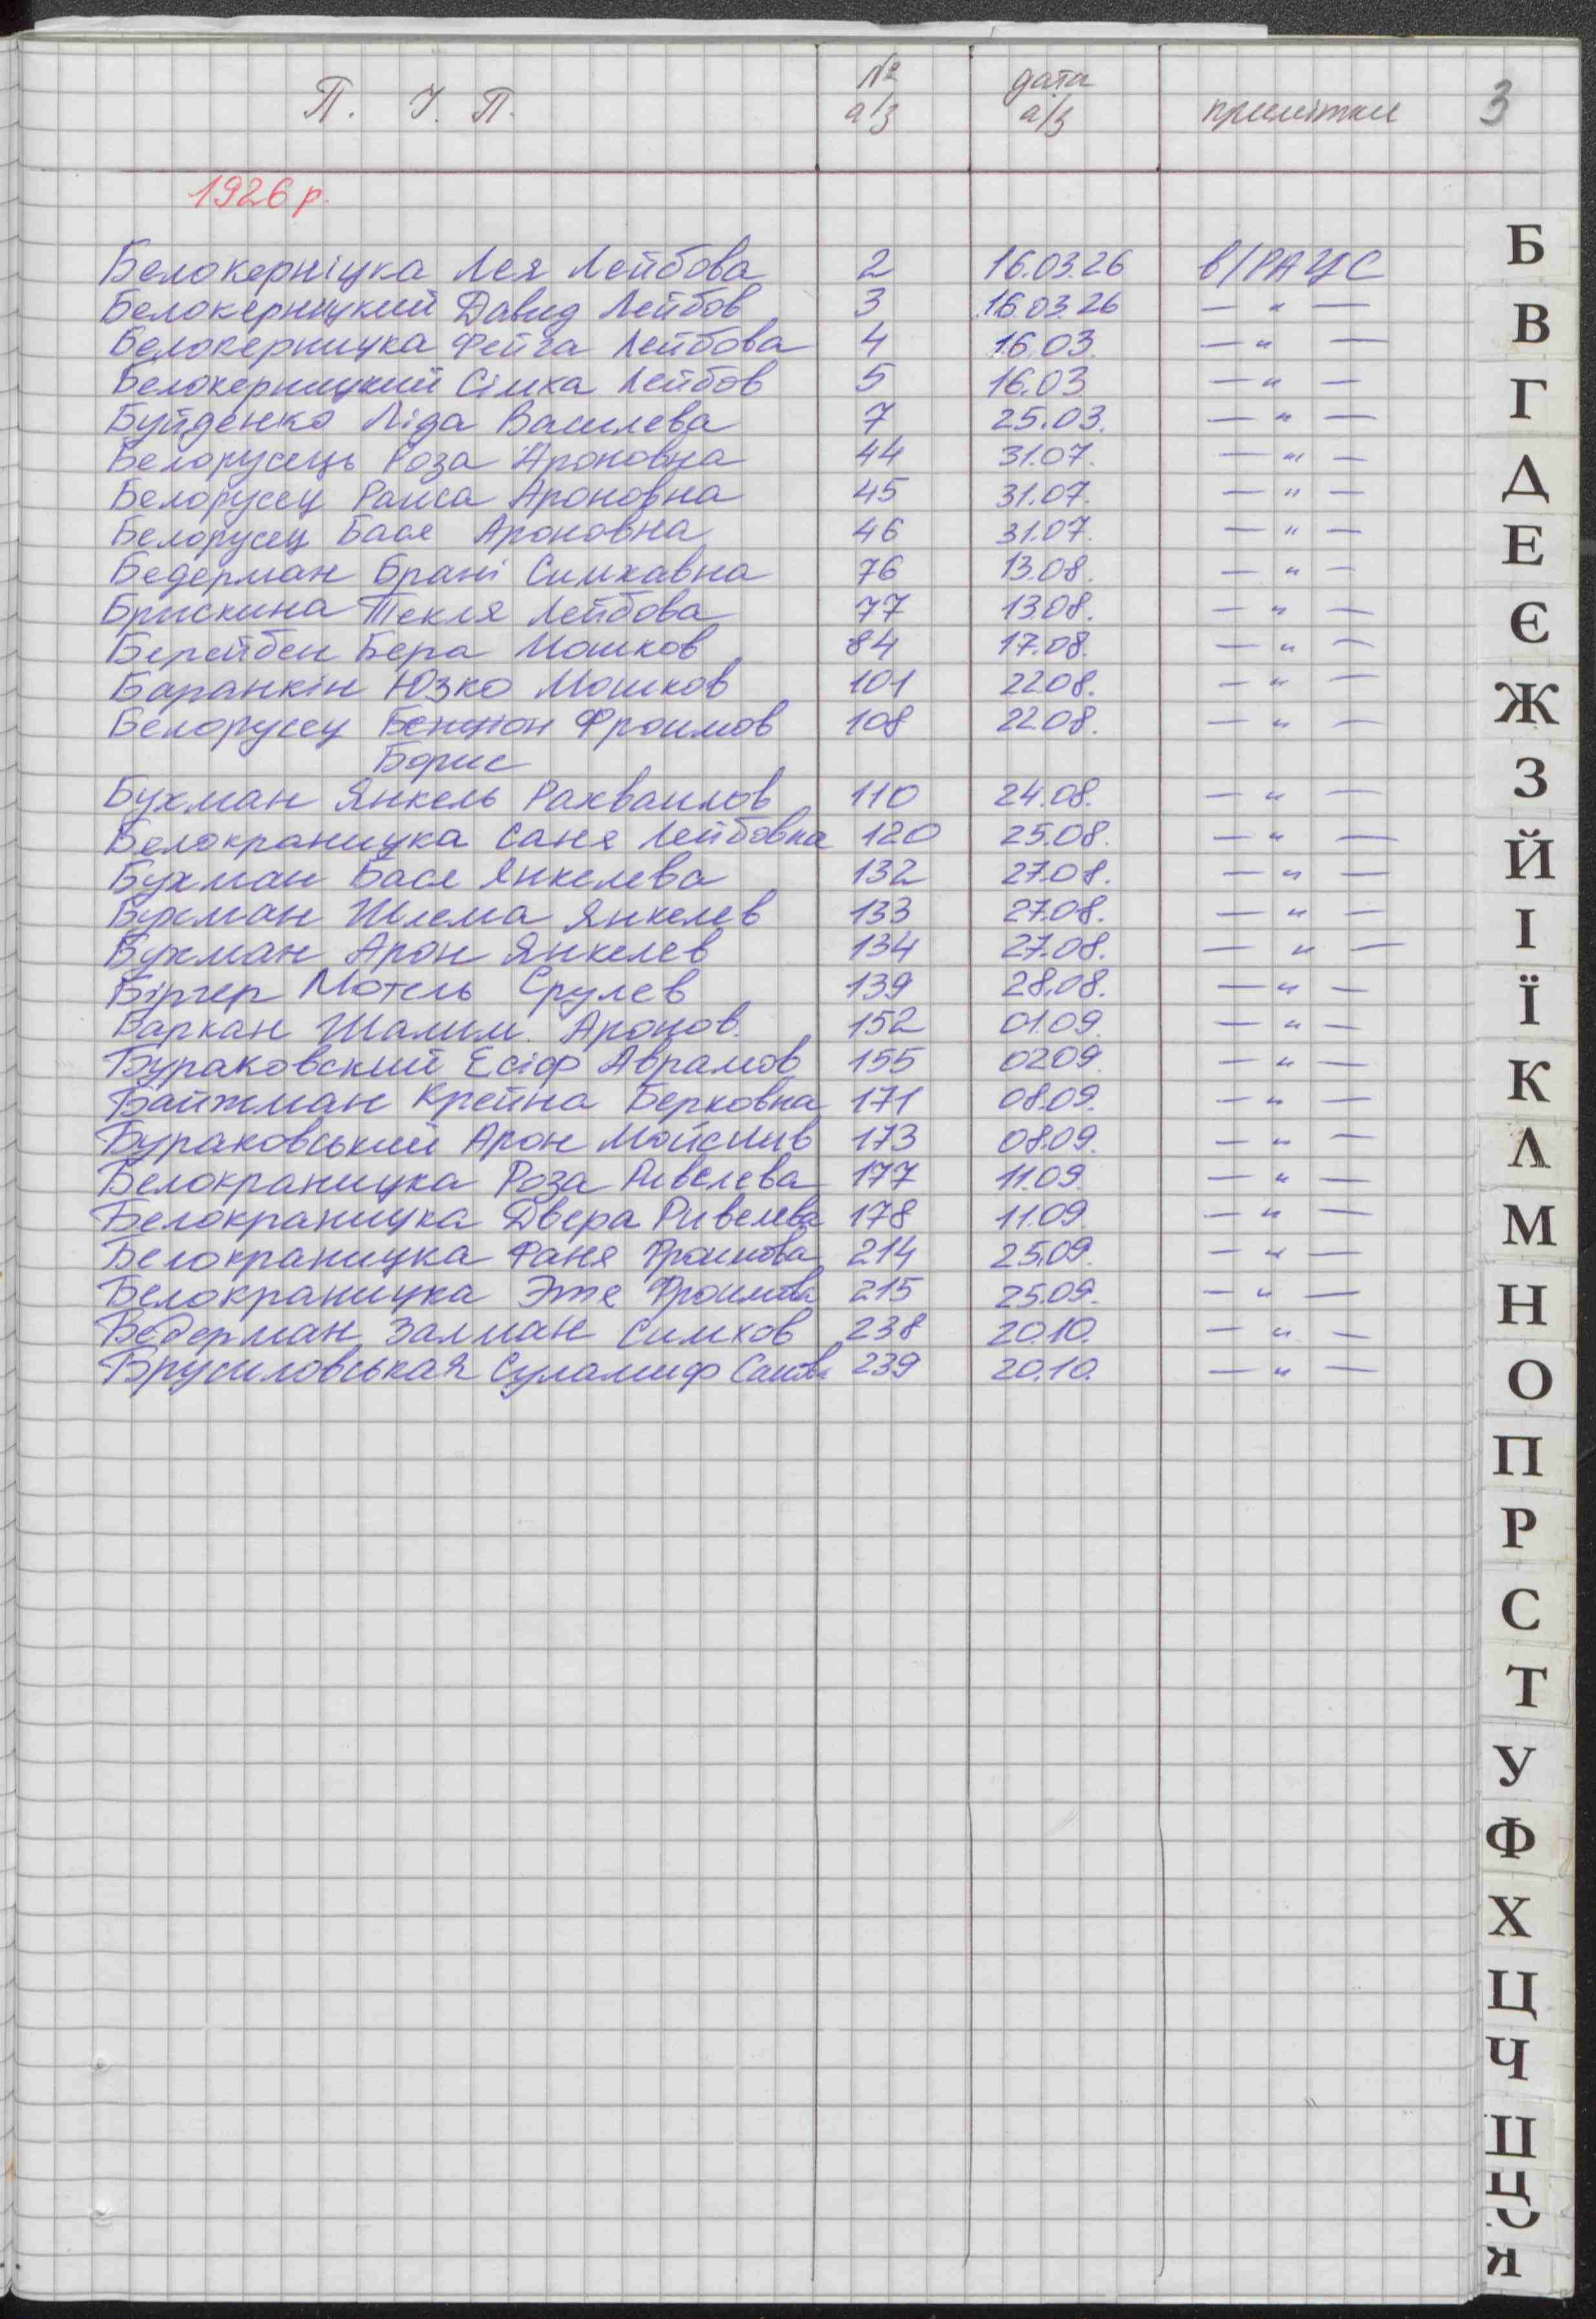 П. І. П. № а/з дата а/з примітки 3
1926 р.
Белокерніцка Лея Лейбова 2 16.03.26 в/РАЦС
Белокерницкий Давид Лейбов 3 16.03.26 — " —
Белокерницка Фейга Лейбова 4 16.03. — " —
Белокерницкий Сімха Лейбов 5 16.03 — " —
Буйденко Ліда Василева 7 25.03. — " —
Белорусець Роза Ароновна 44 31.07. — " —
Белорусец Раиса Ароновна 45 31.07. — " —
Белорусец Бася Ароновна 46 31.07. — " —
Бедерман Брані Симхавна 76 13.08. — " —
Брискина Текля Лейбова 77 13.08. — " —
Берейбен Бера Мошков 84 17.08. — " —
Баранкін Юзко Мошков 101 22.08. — " —
Белорусец Бенціон Фроимов 108 22.08. — " —
Борис
Бухман Янкель Рахваилов 110 24.08. — " —
Белокраницка Саня Лейбовна 120 25.08. — " —
Бухман Бася Янкелева 132 27.08. — " —
Бухман Шлема Янкелев 133 27.08. — " —
Бухман Арон Янкелев 134 27.08. — " —
Біргер Мотель Срулев 139 28.08. — " —
Баркан Шалим. Аронов. 152 01.09. — " —
Бураковский Есіф Аврамов 155 02.09. — " —
Байжман Крейна Берковна 171 08.09. — " —
Бураковський Арон Мойсиив 173 08.09. — " —
Белокраницка Роза Ривелева 177 11.09. — " —
Белокраницка Двера Ривелева 178 11.09. — " —
Белокраницка Фаня Фроимова 214 25.09. — " —
Белокраницка Эте Фроимова 215 25.09. — " —
Бедерман Залман Симхов 238 20.10. — " —
Брусиловськая Суламиф 239 20.10. — " —
Б
В
Г
Д
Е
Є
Ж
З
Й
І
Ї
К
Л
М
Н
О
П
Р
С
Т
У
Ф
Х
Ц
Ч
Я